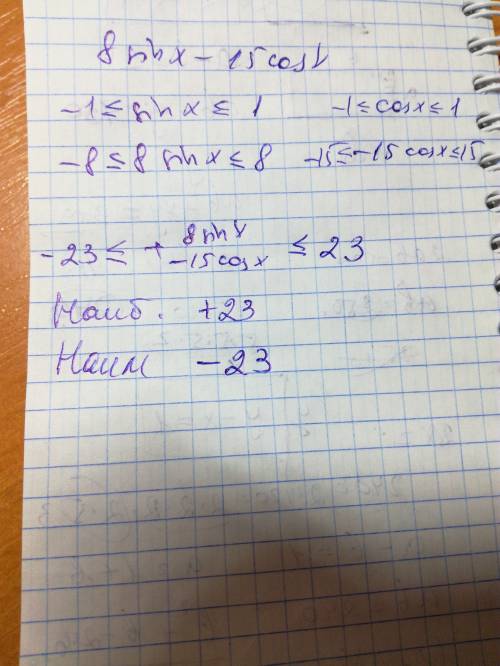 8 sin x - 15 cos x
-1 ≤ sin x ≤ 1 -1 ≤ cos x ≤ 1
-8 ≤ 8 sin x ≤ 8 -15 ≤ -15 cos x ≤ 15
-23 ≤ + 8 sin x - 15 cos x ≤ 23
Наиб. +23
Наим -23